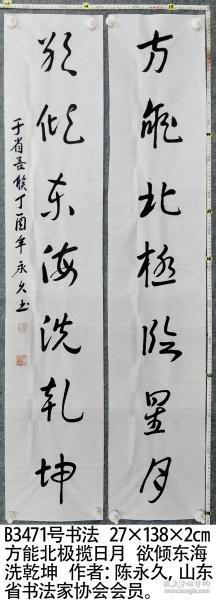 方能北極星月
欲倾东海洗乾坤
于省吾联丁酉年永久书
B3471号书法 27×138×2cm
方能北极揽日月 欲倾东海
洗乾坤 作者：陈永久，山东
省书法家协会会员。